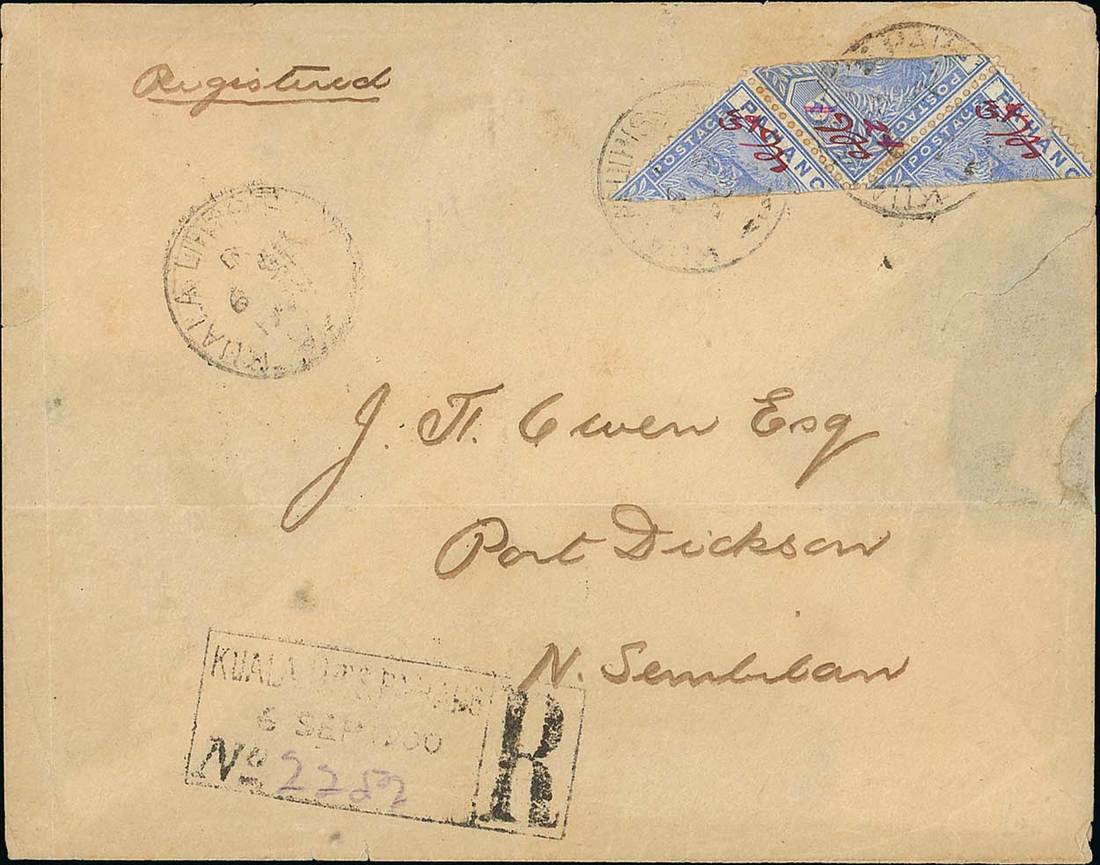 Registered
POSTAGE PAHANG
POSTAGE
POSTAGE PAHANG
KUALA LIPIS
J. H. Owen Esq
Port Dickson
N. Sembilan
KUALA LIPIS PAHANG
6 SEP 1900
No 2252
R